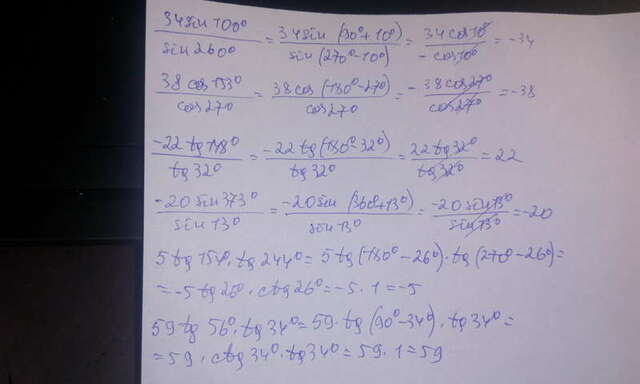 34sin 100° / sin 260° = 34sin (90°+10°) / sin (270°-10°) = 34cos 10° / -cos 10° = -34
38 cos 153° / cos 27° = 38 cos (180°-27°) / cos 27° = - 38 cos 27° / cos 27° = -38
-22 tg 148° / tg 32° = -22 tg (180°-32°) / tg 32° = 22 tg 32° / tg 32° = 22
-20 sin 373° / sin 13° = -20 sin (360°+13°) / sin 13° = -20 sin 13° / sin 13° = -20
5 tg 154° · tg 244° = 5 tg (180° - 26°) · tg (270° - 26°) =
= -5 tg 26° · ctg 26° = -5 · 1 = -5
59 tg 56° · tg 34° = 59 · tg (90° - 34°) · tg 34° =
= 59 · ctg 34° · tg 34° = 59 · 1 = 59